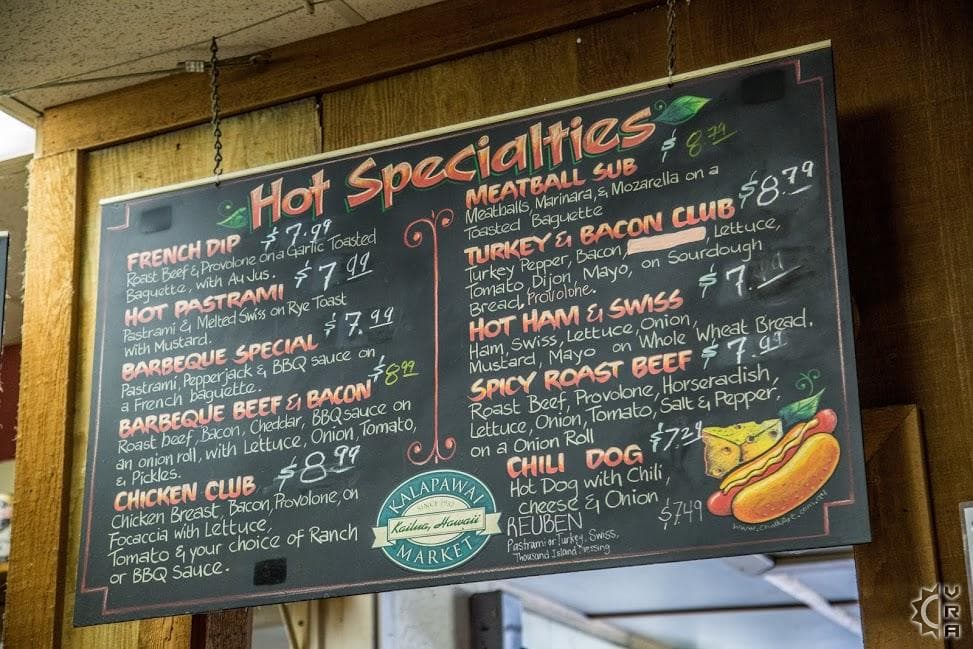 Hot Specialties
FRENCH DIP $7.99
Roast Beef & Provolone on a Garlic Toasted
Baguette, with Au Jus.
HOT PASTRAMI $7.99
Pastrami & Melted Swiss on Rye Toast
with Mustard.
BARBEQUE SPECIAL $7.99
Pastrami, Pepperjack & BBQ sauce on
a French baguette.
BARBEQUE BEEF & BACON $8.99
Roast beef, Bacon, Cheddar, BBQ sauce on
an onion roll, with Lettuce, Onion, Tomato,
& Pickles.
CHICKEN CLUB $8.99
Chicken Breast, Bacon, Provolone, on
Focaccia with Lettuce,
Tomato & your choice of Ranch
or BBQ Sauce.
MEATBALL SUB $8.79
Meatballs, Marinara, & Mozarella on a
Toasted Baguette
TURKEY & BACON CLUB $8.79
Turkey Pepper, Bacon, Lettuce,
Tomato, Dijon, Mayo, on Sourdough
Bread, Provolone.
HOT HAM & SWISS $7.99
Ham, Swiss, Lettuce, Onion,
Mustard, Mayo on Whole Wheat Bread.
SPICY ROAST BEEF $7.99
Roast Beef, Provolone, Horseradish,
Lettuce, Onion, Tomato, Salt & Pepper,
on a Onion Roll
CHILI DOG $7.29
Hot Dog with Chili,
cheese & Onion
REUBEN $7.49
Pastrami or Turkey, Swiss,
Thousand Island Dressing
KALAPAWAI
SINCE 1932
Kailua, Hawaii
MARKET
VRA